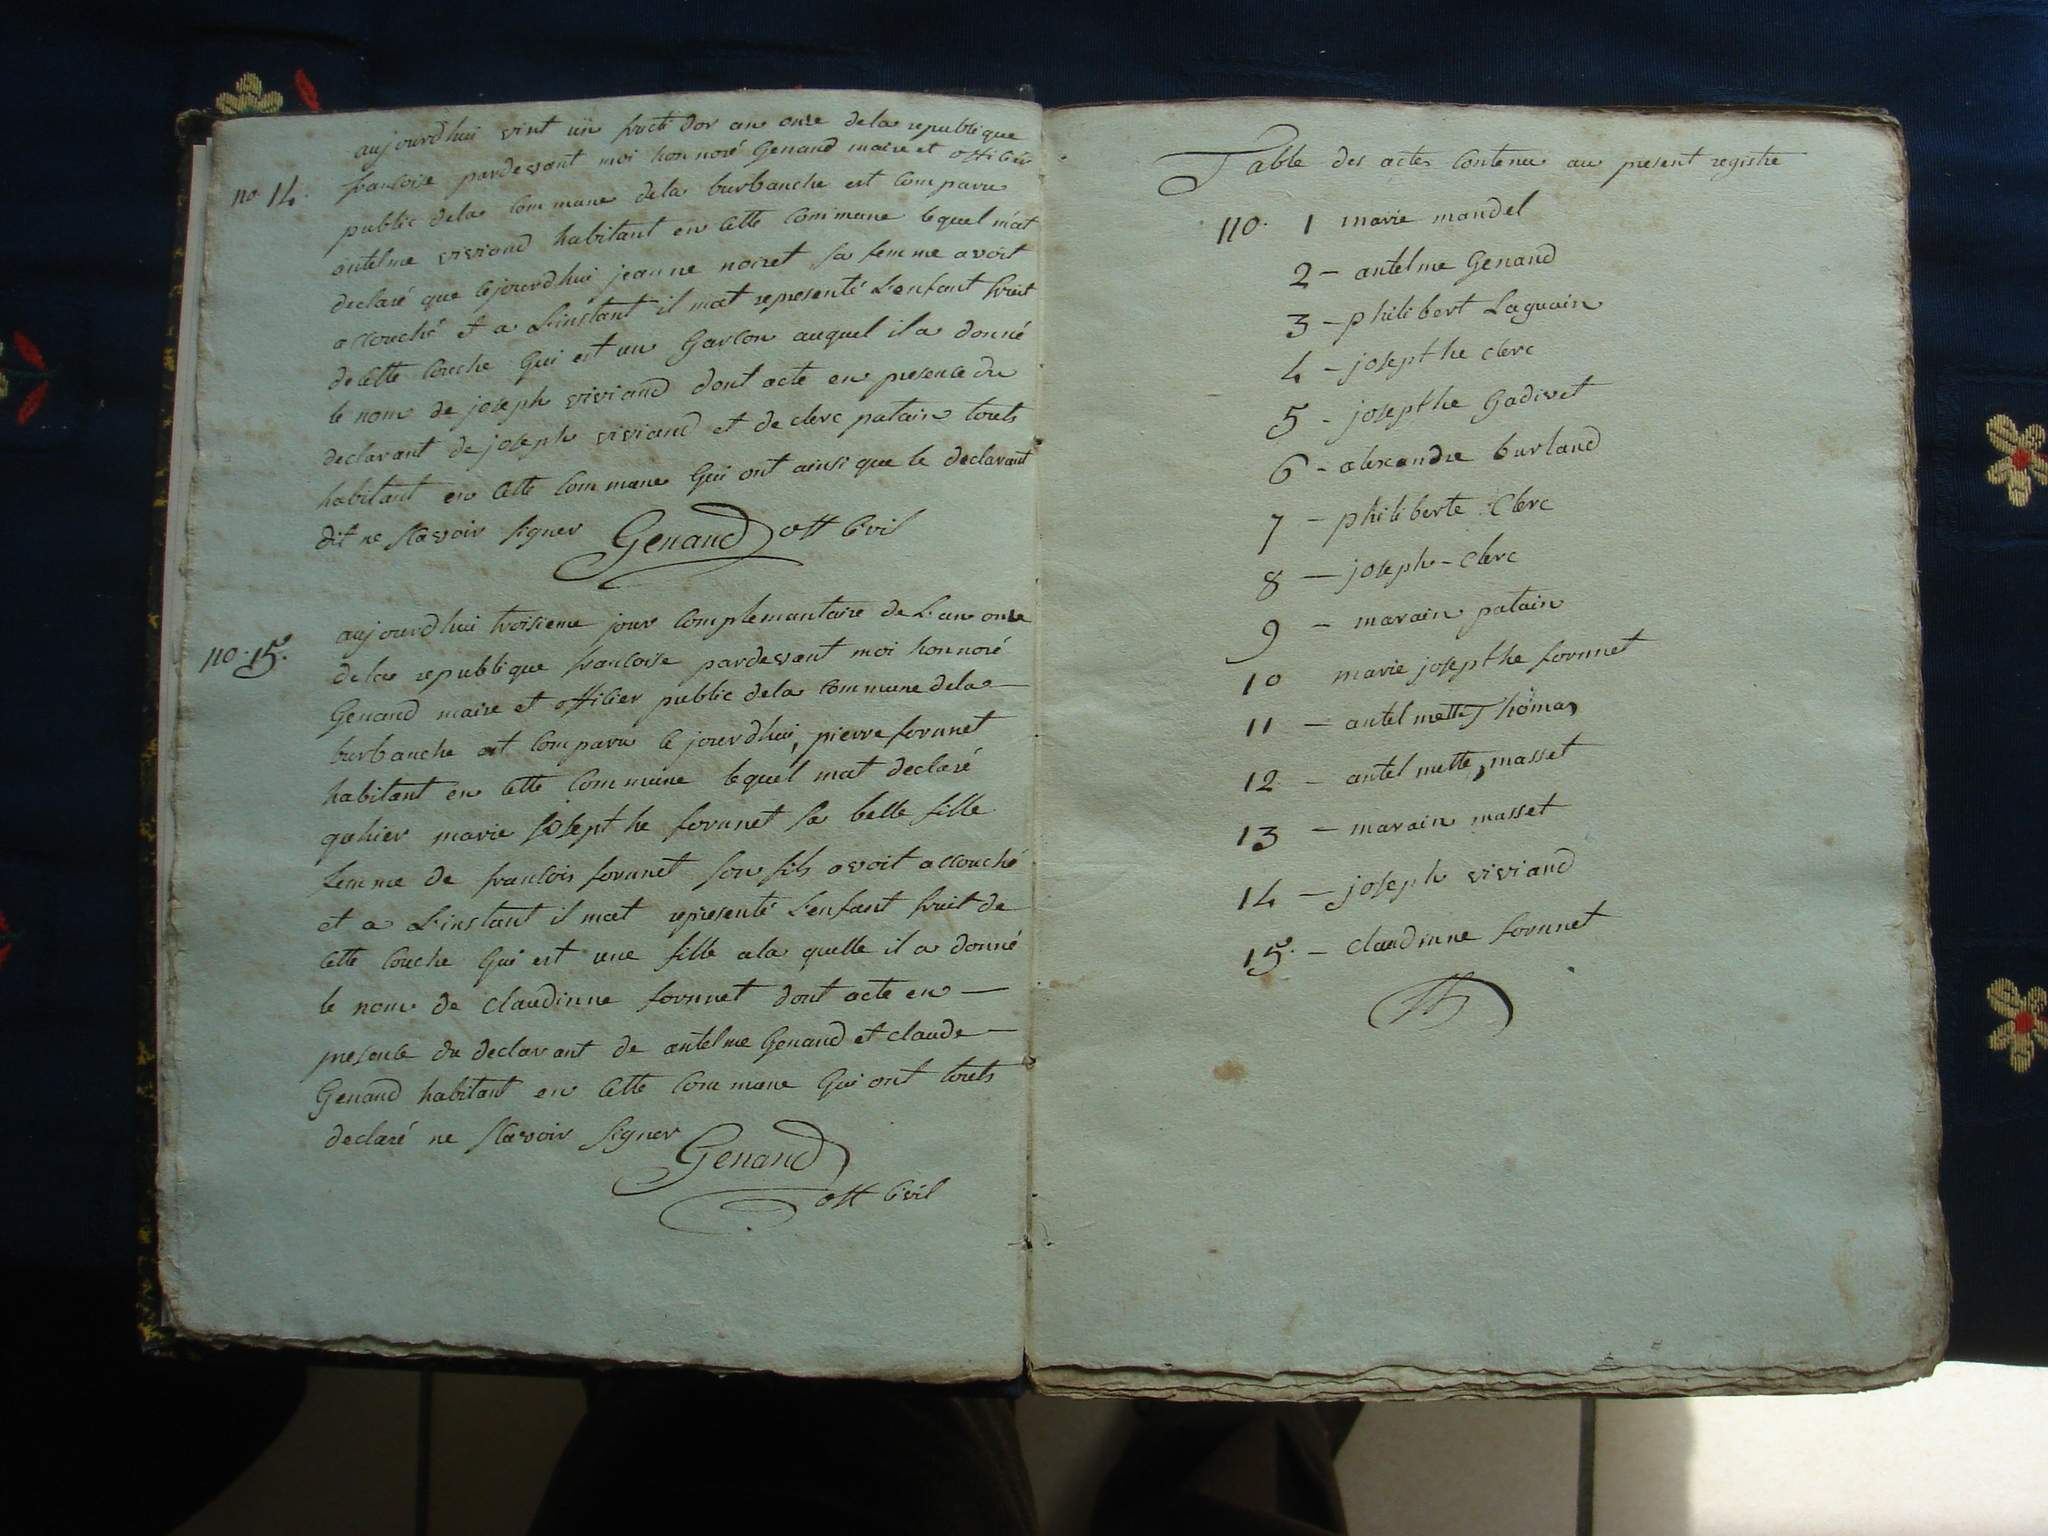 aujourd'hui vint un fructi dor an onze dela republique
no 14. francoise pardevant moi honnoré Genand maire et officier
public dela commune dela burbanche est comparu
antelme viviand habitant en cette commune lequel m'at
declaré que cejourdhui jeanne noiret sa femme avoit
accouché et a L'instant il mat representé L'enfant fruit
decette couche qui est un Garcon auquel il a donné
le nom de joseph viviand dont acte en presence du
declarant de joseph viviand et de clerc patain touts
habitant en cette commune qui ont ainsi que le declarant
dit ne scavoir signer Genand off civil
no. 15. aujourdhui troisieme jour complemantaire de L'an onze
dela republique francoise pardevant moi honnoré
Genand maire et officier public dela commune dela
burbanche est comparu cejourdhui, pierre forunet
habitant en cette commune lequel mat declaré
quhier marie josepthe forunet sa belle fille
femme de francois forunet son fils avoit accouché
et a L'instant il mat representé L'enfant fruit de
cette couche qui est une fille ala quelle il a donné
le nom de claudinne forunet dont acte en
presence du declarant de antelme Genand et claude
Genand habitant en cette commune qui ont touts
declaré ne scavoir signer
Genand
off civil
Table des actes contenu au present registre
no. 1 marie mandel
2 - antelme Genand
3 - philibert Laguain
4 - josepthe clerc
5 - josepthe Gadivet
6 - alexandre burland
7 - philiberte Clerc
8 - joseph - Clerc
9 - marain patain
10 marie josepthe forunet
11 - antelmette Thomas
12 - antelmette, masset
13 - marain masset
14 - joseph viviand
15. - claudinne forunet